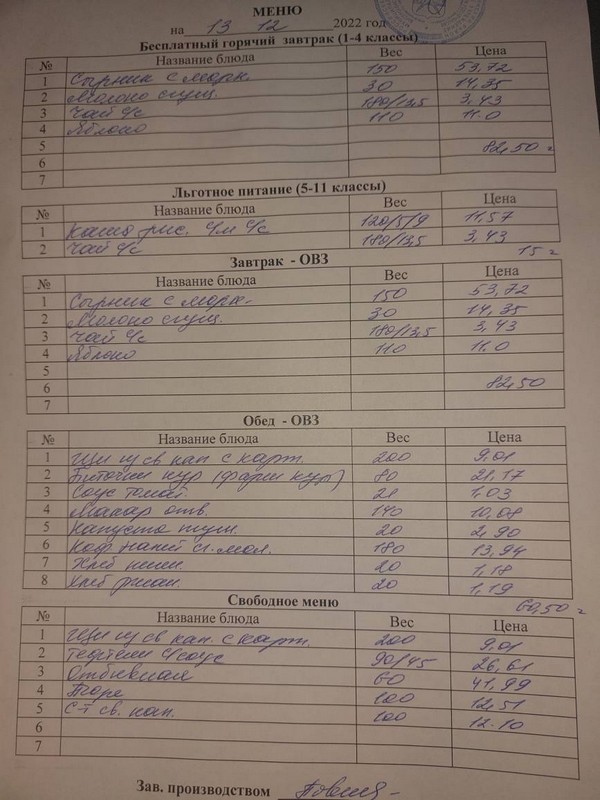 МЕНЮ
на 13 12 2022 год
Бесплатный горячий завтрак (1-4 классы)
№ Название блюда Вес Цена
1 Сырник с морк. 150 53,72
2 Молоко сгущ. 30 14,35
3 Чай с/с 180/13,5 3,43
4 Яблоко 110 11.0
5 82,50
6
7
Льготное питание (5-11 классы)
№ Название блюда Вес Цена
1 Каша рис. с/м с/с 120/5/9 11,57
2 Чай с/с 180/13,5 3,43
15
Завтрак - ОВЗ
№ Название блюда Вес Цена
1 Сырник с морк. 150 53,72
2 Молоко сгущ. 30 14,35
3 Чай с/с 180/13,5 3,43
4 Яблоко 110 11.0
5
6 82,50
7
Обед - ОВЗ
№ Название блюда Вес Цена
1 Щи из св кап. с карт. 200 9.01
2 Биточки кур (фарш кур) 80 21,17
3 Соус томат. 21 1,03
4 Макар отв. 140 10,08
5 Капуста туш. 20 2,90
6 Коф. напит сг. мол. 180 13,94
7 Хлеб пшен. 20 1,18
8 Хлеб ржан. 20 1,19
60,50
Свободное меню
№ Название блюда Вес Цена
1 Щи из св кап. с карт. 200 9.01
2 Тефтели с/соус 90/45 26,61
3 Отбивная 60 41,99
4 Пюре 100 12,51
5 С-т св. кап. 100 12.10
6
7
Зав. производством